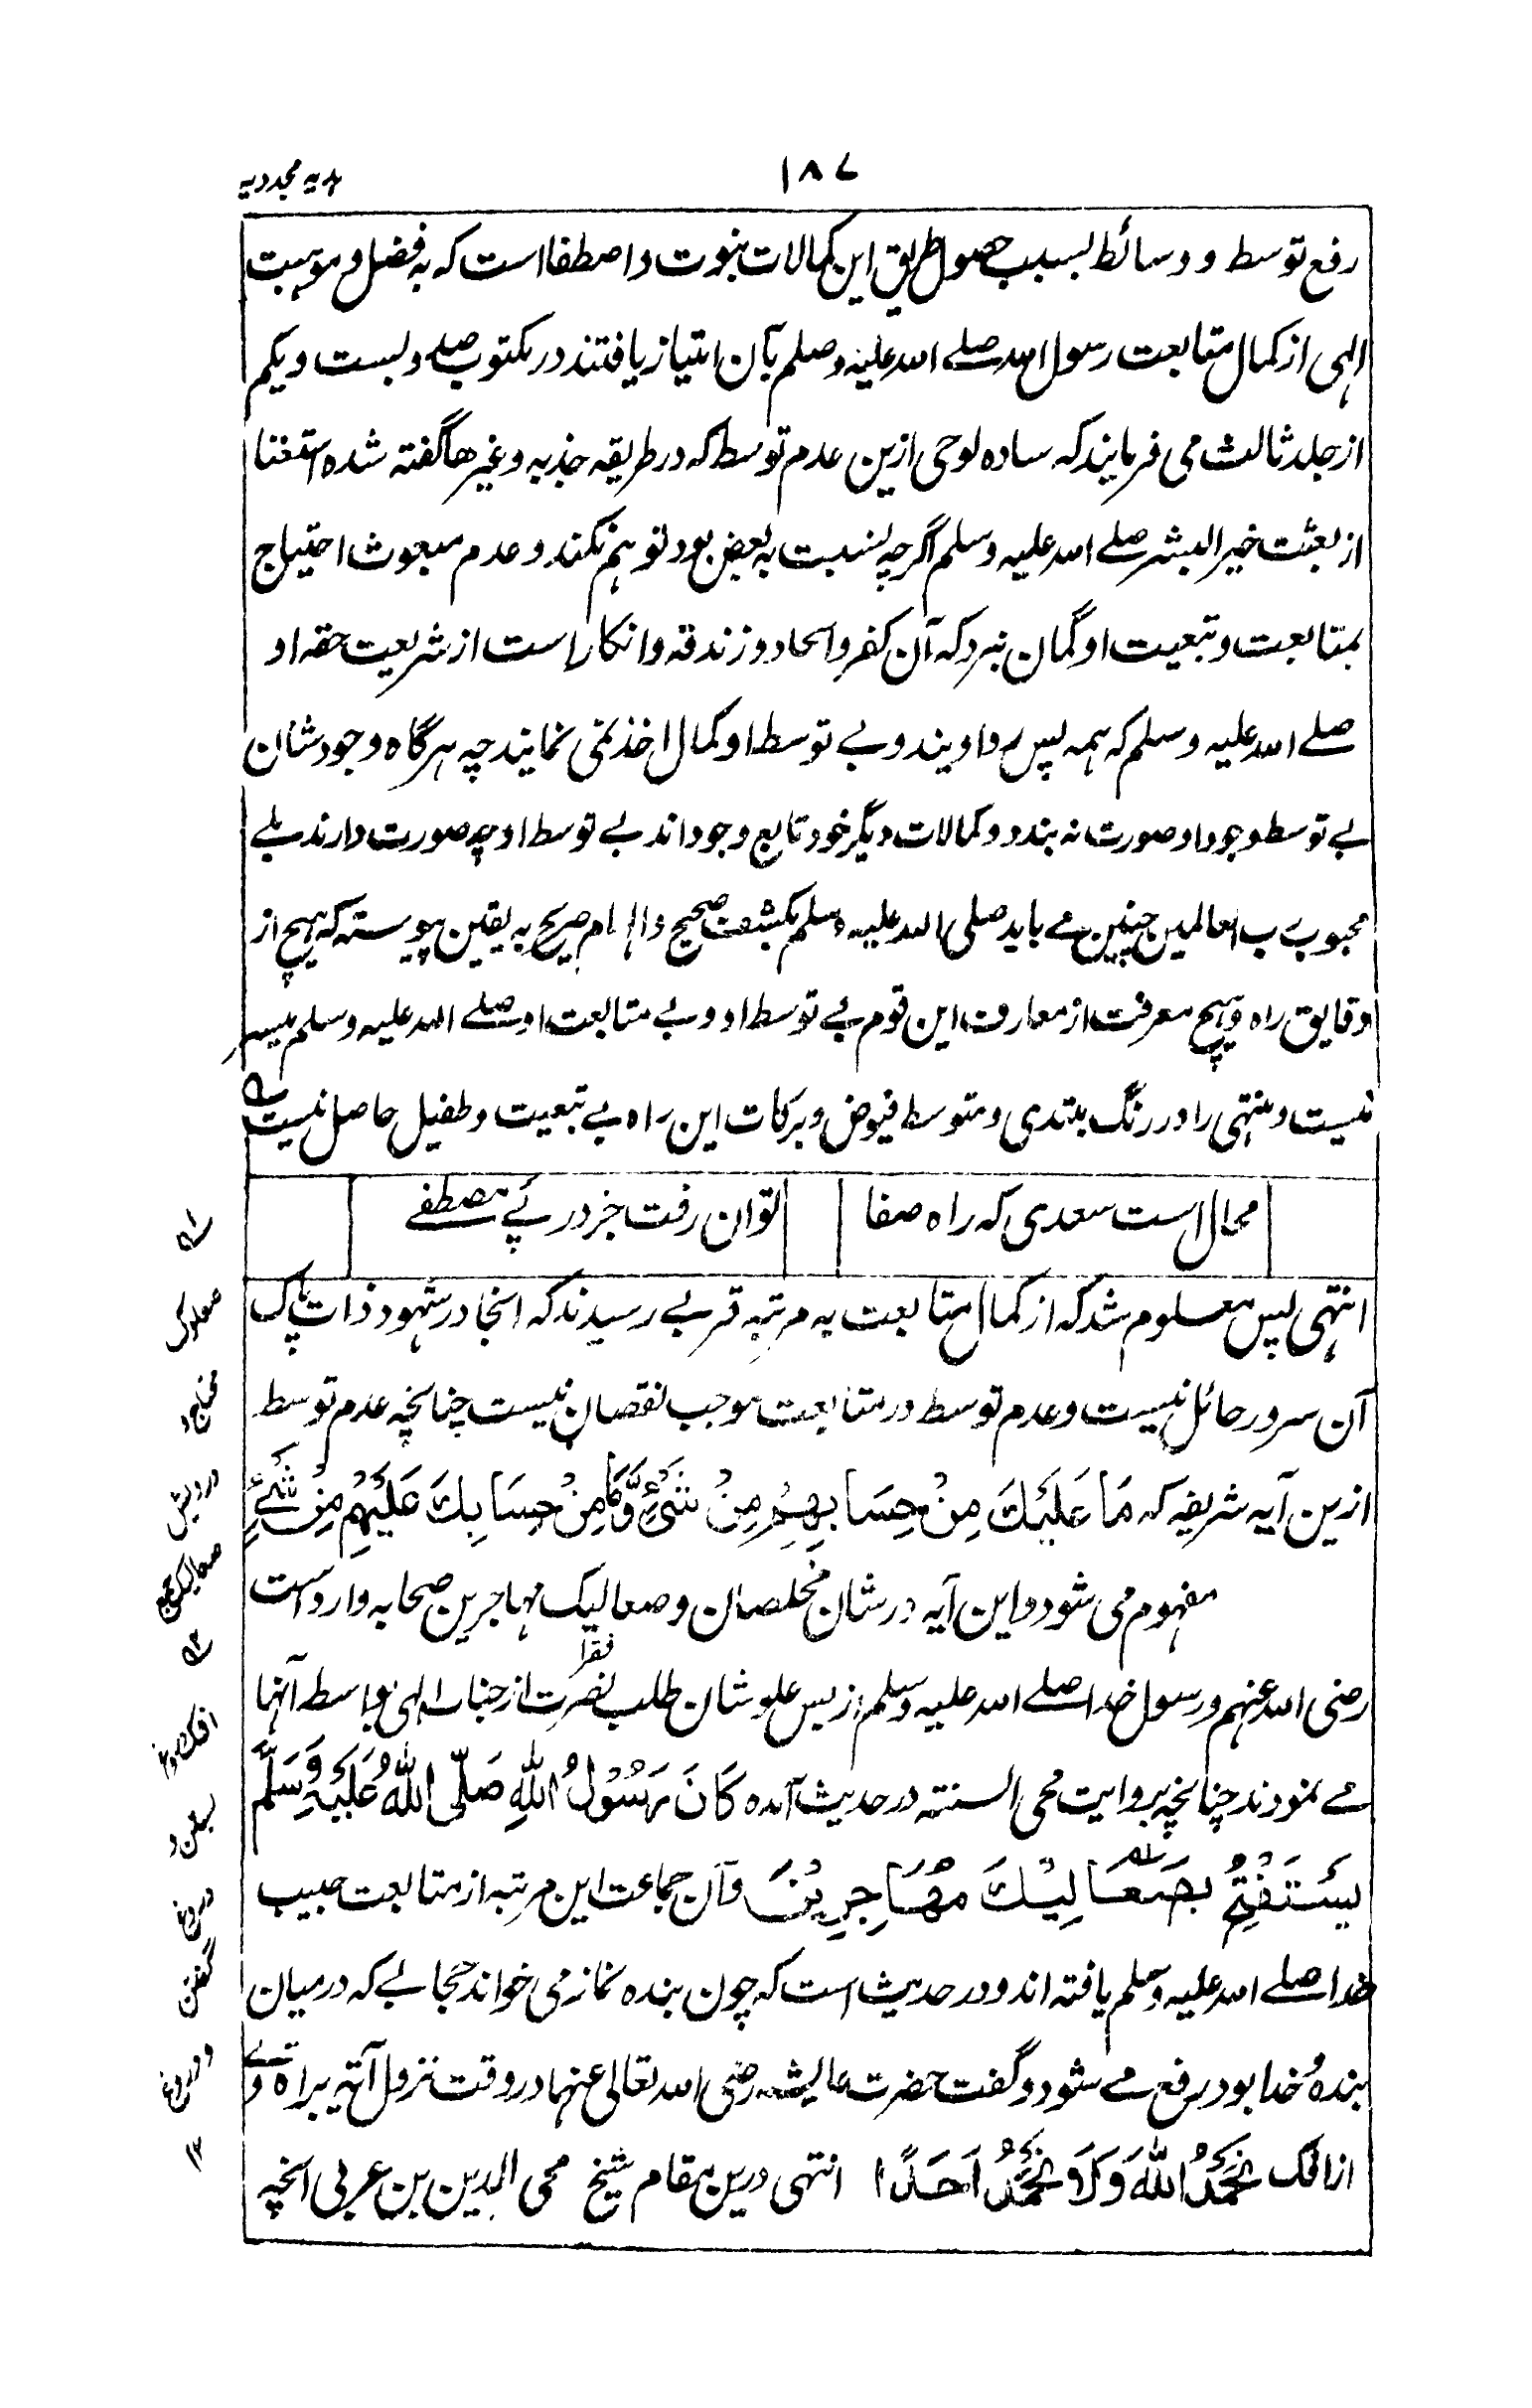 ۱۸۷
هدیه مجددیه
رفع توسط و وسائط بسبب حصول طریق این کمالات نبوت و اصطفا است که به فضل و موهبت
الهی از کمال متابعت رسول الله صلے الله علیه وصلم بآن امتیاز یافتند در مکتوب صد و بست و یکم
از جلد ثالث می فرمایند که ساده لوحی ازین عدم توسط که در طریقه جذبه و غیرها گفته شده استغنا
از بعثت خیر البشر صلے الله علیه وسلم اگرچه بنسبت به بعض بود توهم نکند و عدم مبعوث احتیاج
بمتابعت و تبعیت او گمان نبرد که آن کفر و الحاد و زندقه و انکار است از شریعت حقه او
صلے الله علیه وسلم که همه پس رو اویند و بے توسط او کمال اخذ نمی نمایند چه هرگاه وجود شان
بے توسط وجود او صورت نه بندد و کمالات دیگر خود تابع وجود اند بے توسط او چه صورت دارند بلے
محبوب رب العالمین چنین مے باید صلی الله علیه وسلم بکشف صحیح و الهام صریح به یقین پیوسته که هیچ از
دقایق راه و هیچ معرفت از معارف این قوم بے توسط او و بے متابعت او صلے الله علیه وسلم میسر
نیست و منتهی را در رنگ مبتدی و متوسط فیوض و برکات این راه بے تبعیت و طفیل حاصل نیست
محال است سعدی که راه صفا توان رفت جز در پئے مصطفے
انتهی پس معلوم شد که از کمال متابعت به مرتبه قربے رسیدند که انجا در شهود ذات پاک
آن سرور حائل نیست و عدم توسط در متابعت موجب نقصان نیست چنانچه عدم توسط
ازین آیه شریفه که مَا عَلَیْكَ مِنْ حِسَابِهِمْ مِنْ شَیْءٍ وَّمَا مِنْ حِسَابِكَ عَلَیْهِمْ مِنْ شَیْءٍ
مفهوم می شود و این آیه در شان مخلصان و صعالیک مهاجرین صحابه وارد است
فقرا
رضی الله عنهم و رسول خدا صلے الله علیه وسلم از بس علو شان طلب نصرت از جناب الهی بواسطه آنها
مے نمودند چنانچه بروایت محی السنته در حدیث آمده كَانَ رَسُوْلُ اللهِ صَلَّی اللهُ عَلَیْهِ وَسَلَّمَ
یَسْتَفْتِحُ بِصَعَالِیْكَ مُهَاجِرِیْنَ و آن جماعت این مرتبه از متابعت حبیب
خدا صلے الله علیه وسلم یافته اند و در حدیث است که چون بنده نماز می خواند حجابے که درمیان
بندهٔ خدا بود رفع مے شود و گفت حضرت عایشه رضی الله تعالی عنها در وقت نزول آیه براه وے
از افک نَحْمَدُ اللهَ وَلَا نَحْمَدُ اَحَدًا انتهی درین مقام شیخ محی الدین بن عربی انچه
صعلوک
محتاج و
درویش
صعالیک جمع
افک دروغ
دروغ
گفتن
و دروغ
۱۲